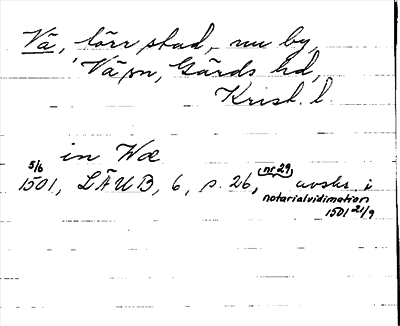 Vä, förr stad, nu by,
Vä sn, Gärds hd,
Krist. l.
in Wæ
5/6
1501, LÄUB, 6, s. 26, nr 29, avskr. i
notarialvidimation
1501 21/9